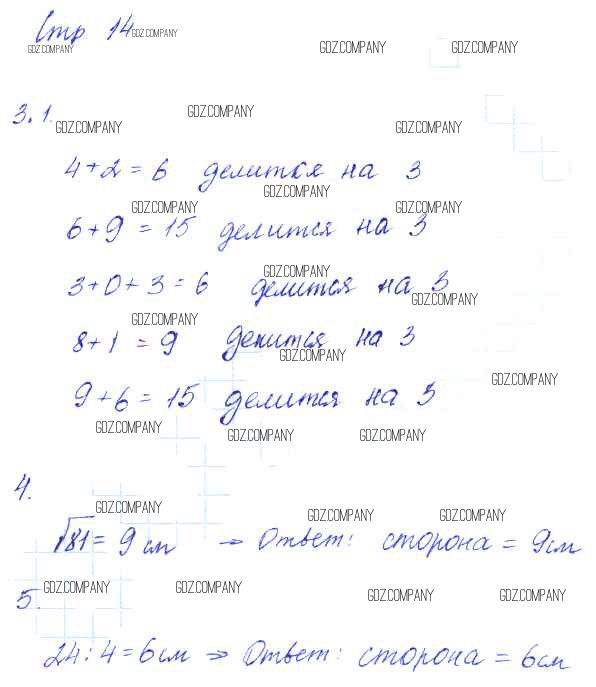 Стр 14 GDZ.COMPANY
GDZ.COMPANY GDZ.COMPANY GDZ.COMPANY
3.1. GDZ.COMPANY
GDZ.COMPANY GDZ.COMPANY
4+2=6 делится на 3
GDZ.COMPANY
GDZ.COMPANY GDZ.COMPANY
6+9=15 делится на 3
GDZ.COMPANY
3+0+3=6 делится на 3
GDZ.COMPANY
GDZ.COMPANY
8+1=9 делится на 3
GDZ.COMPANY
GDZ.COMPANY
9+6=15 делится на 3
GDZ.COMPANY GDZ.COMPANY GDZ.COMPANY
4.
GDZ.COMPANY GDZ.COMPANY GDZ.COMPANY
√81=9 см → Ответ: сторона = 9см
GDZ.COMPANY GDZ.COMPANY GDZ.COMPANY GDZ.COMPANY
5.
24:4=6см => Ответ: сторона = 6см